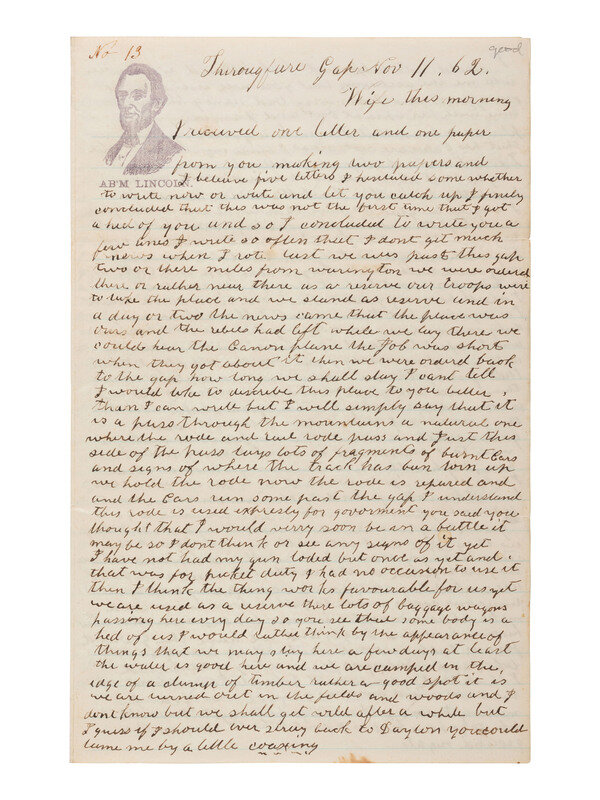 No 13
good
Thirougfare Gap Nov 11. 62.
Wife this morning
I received one letter and one paper
from you making two papers and
I believe five letters I hesitated some whether
AB'M LINCOLN.
to write now or wate and let you catch up I finely
concluded that this was not the first time that I got
a hed of you and so I concluded to write you a
few lines I write so often that I dont get much
news when I rote last we was past this gap
two or there miles from warington we were ordered
there or rather near there as a reserve our troops were
to take the place and we stand as reserve and in
a day or two the news came that the place was
ours and the rebles had left while we lay there we
could hear the Canon plane the Job was short
when they got about it then we were orderd back
to the gap how long we shall stay I cant tell
I would like to discribe this place to you better
than I can write but I will simply say that it
is a pass through the mountains a natural one
where the rode and rail rode pass and Just this
side of the pass lays lots of fragments of burnt Cars
and signs of where the track has bun torn up
we hold the rode now the rode is repared and
and the Cars run some past the gap I understand
this rode is used expresly for goverment you said you
thought that I would verry soon be in a battle it
may be so I dont think or see any signs of it yet
I have not had my gun loded but once as yet and
that was for picket duty I had no occasion to use it
then I think the thing works favourable for us yet
we are used as a reserve there lots of baggage wagons
passing here evry day so you see that some body is a
hed of us I would rather think by the appearance of
things that we may stay here a few days at least
the water is good here and we are camped in the
edge of a clump of timber rather a good spot it is
we are turned out in the fields and woods and I
dont know but we shall get wild after a while but
I guess if I should ever stray back to Dayton you could
tame me by a little coaxing